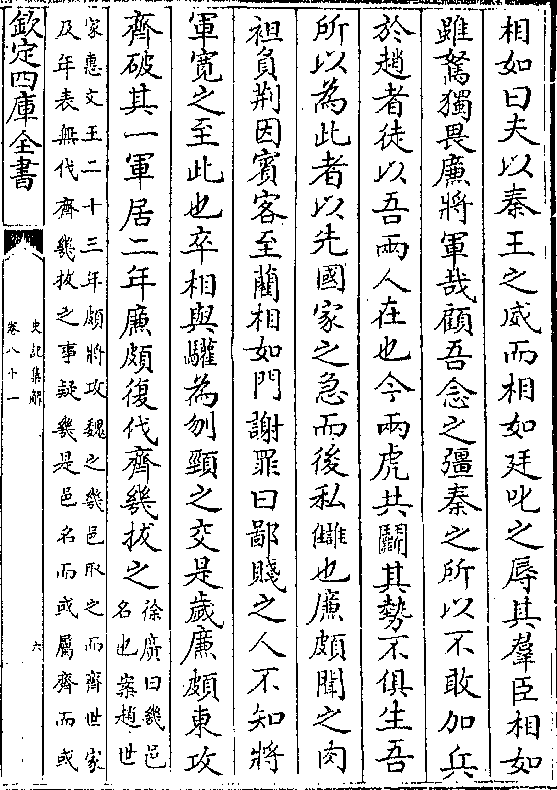 相如曰夫以秦王之威而相如廷叱之辱其羣臣相如
雖駑獨畏廉將軍哉顧吾念之彊秦之所以不敢加兵
於趙者徒以吾兩人在也今兩虎共鬭其勢不俱生吾
所以為此者以先國家之急而後私讎也廉頗聞之肉
袒負荆因賔客至藺相如門謝罪曰鄙賤之人不知將
軍寛之至此也卒相與驩為刎頸之交是歲廉頗東攻
齊破其一軍居二年廉頗復伐齊幾拔之
徐廣曰幾邑
名也案趙世
家惠文王二十三年頗將攻魏之幾邑取之而齊世家
及年表無伐齊幾拔之事疑幾是邑名而或屬齊而或
欽定四庫全書
史記集解
卷八十一
六